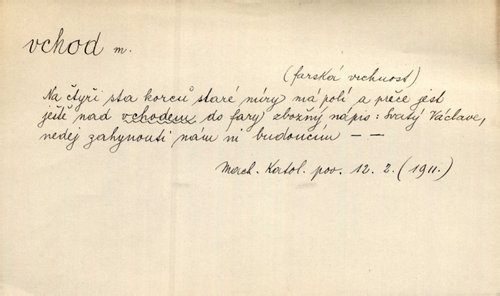 vchod m.
(farská vrchnost)
Na čtyři sta korců staré míry má polí a přece jest
ještě nad vchodem do fary zbožný nápis: Svatý Václave,
nedej zahynouti nám ni budoucím — —
Merh. Katol. pov. 12. 2. (1911.)